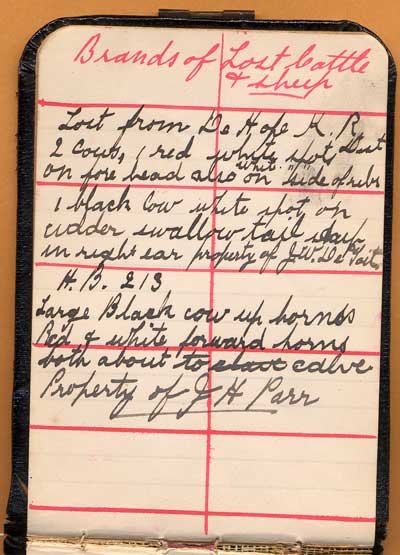 Brands of Lost Cattle
& sheep
Lost from De Hope K. R. Dist
2 cows, 1 red white spot
on fore head also white on side of ribs
1 black cow white spot on
udder swallow tail
in right ear property of J.W. De
H. B. 213
Large Black cow up hornes
Red & white forward horns
both about to calve
Property of J H Parr